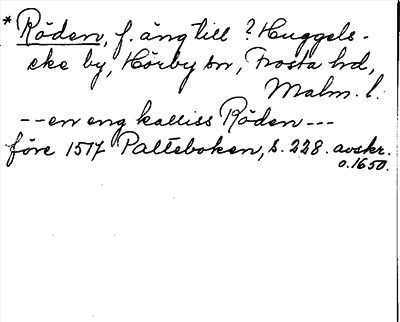 * Röden, f. äng till ? Huggels-
eke by, Hörby sn, Frosta hd,
Malm. l.
-- en eng kalliss Röden ---
före 1517 Palteboken, s. 228. avskr.
o. 1650.